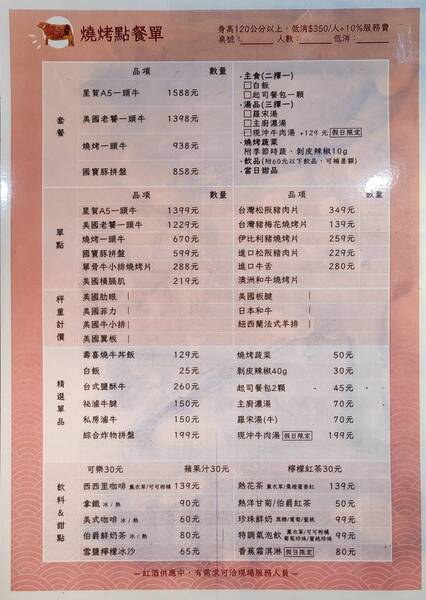 燒烤點餐單
身高120公分以上，低消$350/人+10%服務費
桌號：______ 人數：______ 低消：______
品項 數量
套餐
星賀A5一頭牛 1588元
美國老饕一頭牛 1398元
燒烤一頭牛 938元
國寶豚拼盤 858元
·主食(二擇一)
□白飯
□起司餐包一顆
·湯品(三擇一)
□羅宋湯
□主廚濃湯
□現沖牛肉湯 +129元 假日限定
·燒烤蔬菜
附季節時蔬、剝皮辣椒10g
·飲品(附60元以下飲品，可補差額)
·當日甜品
品項 數量 品項 數量
單點
星賀A5一頭牛 1399元
美國老饕一頭牛 1229元
燒烤一頭牛 670元
國寶豚拼盤 599元
單骨牛小排燒烤片 288元
美國橫膈肌 219元
台灣松阪豬肉片 349元
台灣豬梅花燒烤片 139元
伊比利豬燒烤片 259元
進口松阪豬肉片 229元
進口牛舌 280元
澳洲和牛燒烤片
秤重計價
美國肋眼
美國菲力
美國牛小排
美國翼板
美國板腱
日本和牛
紐西蘭法式羊排
精選單品
壽喜燒牛丼飯 129元
白飯 25元
台式鹽酥牛 260元
祕滷牛腱 150元
私房滷牛 150元
綜合炸物拼盤 199元
燒烤蔬菜 50元
剝皮辣椒40g 30元
起司餐包2顆 45元
主廚濃湯 70元
羅宋湯(牛) 70元
現沖牛肉湯 假日限定 199元
飲料&甜點
可樂30元 蘋果汁30元 檸檬紅茶30元
西西里咖啡 薰衣草/可可柑橘 139元
拿鐵 冰/熱 90元
美式咖啡 冰/熱 60元
伯爵鮮奶茶 冰/熱 80元
雪鹽檸檬冰沙 65元
熱花茶 139元
熱洋甘菊/伯爵紅茶 50元
珍珠鮮奶 黑糖/葡萄/蜜桃 99元
特調氣泡飲 薰衣草/可可柑橘 葡萄珍珠/蜜桃珍珠 99元
香蕉霜淇淋 假日限定 80元
—紅酒供應中，有需求可洽現場服務人員—